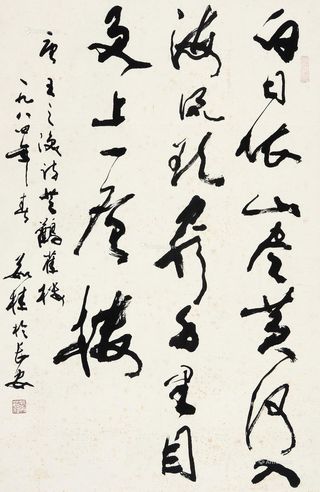 白日依山尽黄河入
海流欲穷千里目
更上一层楼
唐王之涣诗登鹳雀楼
一九八四年春 茹桂於长安